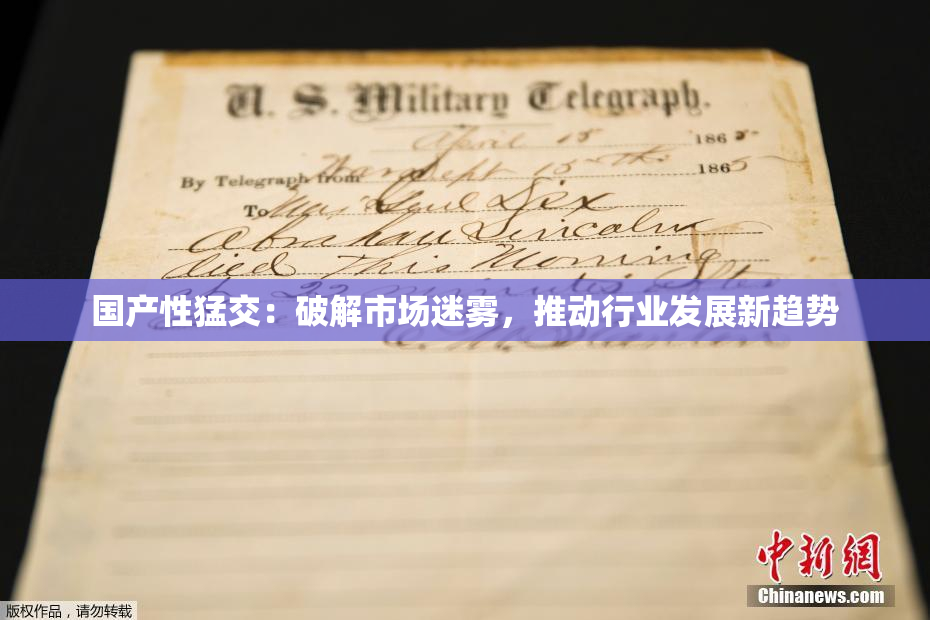 U. S. Military Telegraph.
April 15 1865
By Telegraph from War Dept 15th 1865
To Maj Genl Dix
Abraham Lincoln
died This Morning
at 22 minutes after
国产性猛交：破解市场迷雾，推动行业发展新趋势
E. M. Stanton
中新网
Chinanews.com
版权作品，请勿转载